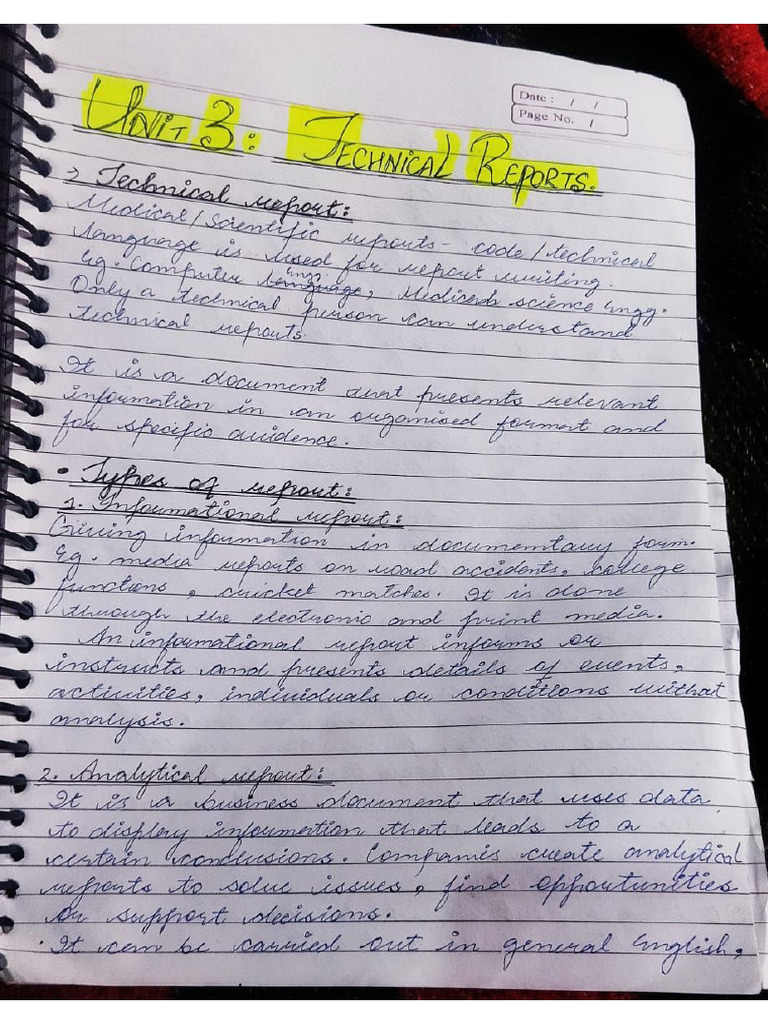 Date : / /
Page No. 1
UNIT 3: TECHNICAL REPORTS.
> Technical report:
Medical/Scientific reports - code/technical
language is used for report writing.
Eg. Computer Engg., Medical science Engg.
Only a technical person can understand
technical reports.
It is a document that presents relevant
information in an organised format and
for specific auidence.
• Types of report:
1. Informational report:
Giving information in documentary form.
Eg. media reports on road accidents, college
functions, cricket matches. It is done
through the electronic and print media.
An informational report informs or
instructs and presents details of events,
activities, individuals or conditions without
analysis.
2. Analytical report:
It is a business document that uses data
to display information that leads to a
certain conclusions. Companies create analytical
reports to solve issues, find opportunities
or support decisions.
• It can be carried out in general English,